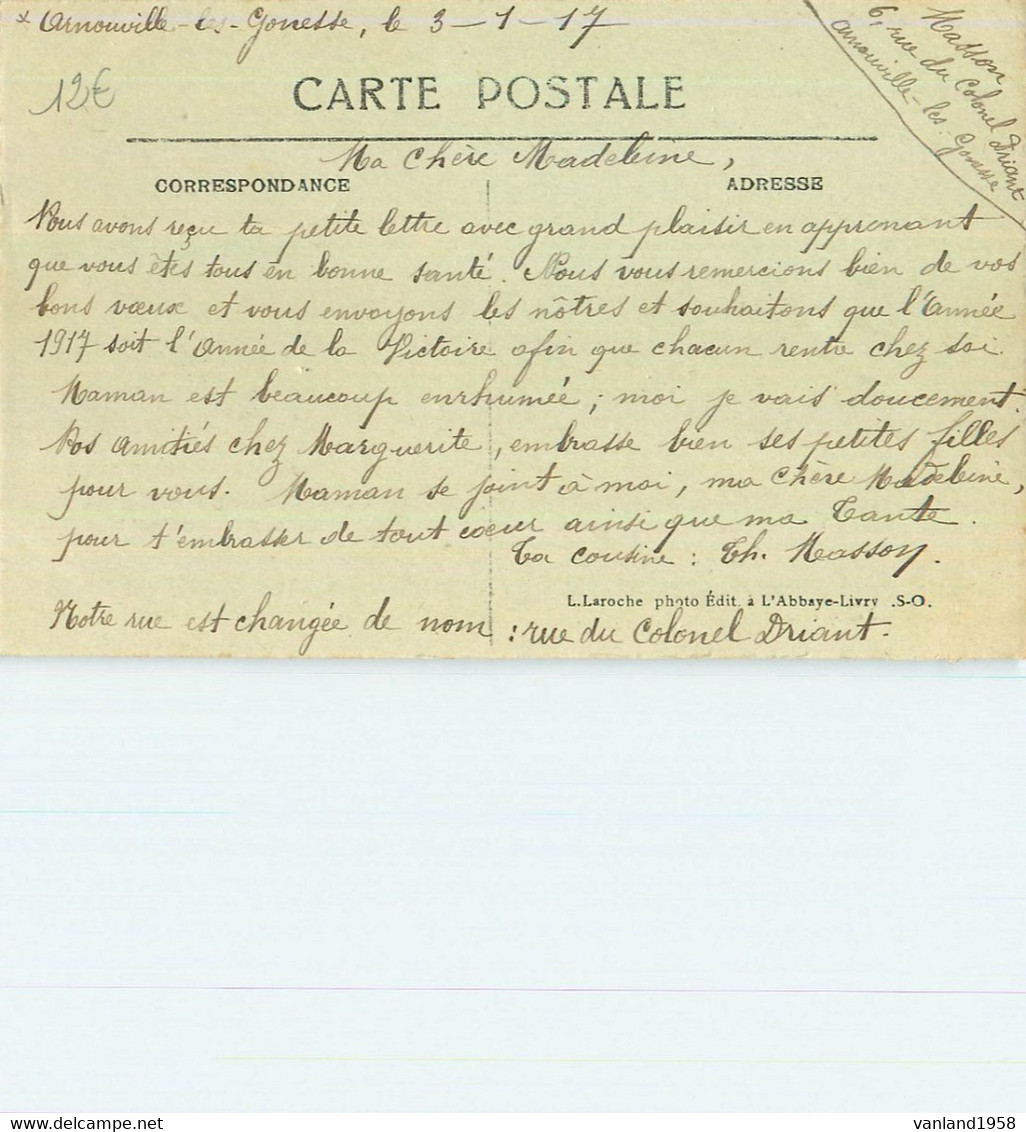 x Arnouville-les-Gonesse, le 3-1-17
Masson
6, rue du Colonel Driant
Arnouville-les-Gonesse
12€
CARTE POSTALE
Ma chère Madeleine,
CORRESPONDANCE
ADRESSE
Nous avons reçu ta petite lettre avec grand plaisir en apprenant
que vous êtes tous en bonne santé. Nous vous remercions bien de vos
bons vœux et vous envoyons les nôtres et souhaitons que l'Année
1917 soit l'Année de la Victoire afin que chacun rentre chez soi.
Maman est beaucoup enrhumée ; moi je vais doucement.
Nos amitiés chez Marguerite, embrasse bien ses petites filles
pour nous. Maman se joint à moi, ma chère Madeleine,
pour t'embrasser de tout cœur ainsi que ma Tante.
Ta cousine : Th. Masson.
L. Laroche photo Édit. à L'Abbaye-Livry .S-O.
Notre rue est changée de nom : rue du Colonel Driant.
vanland1958